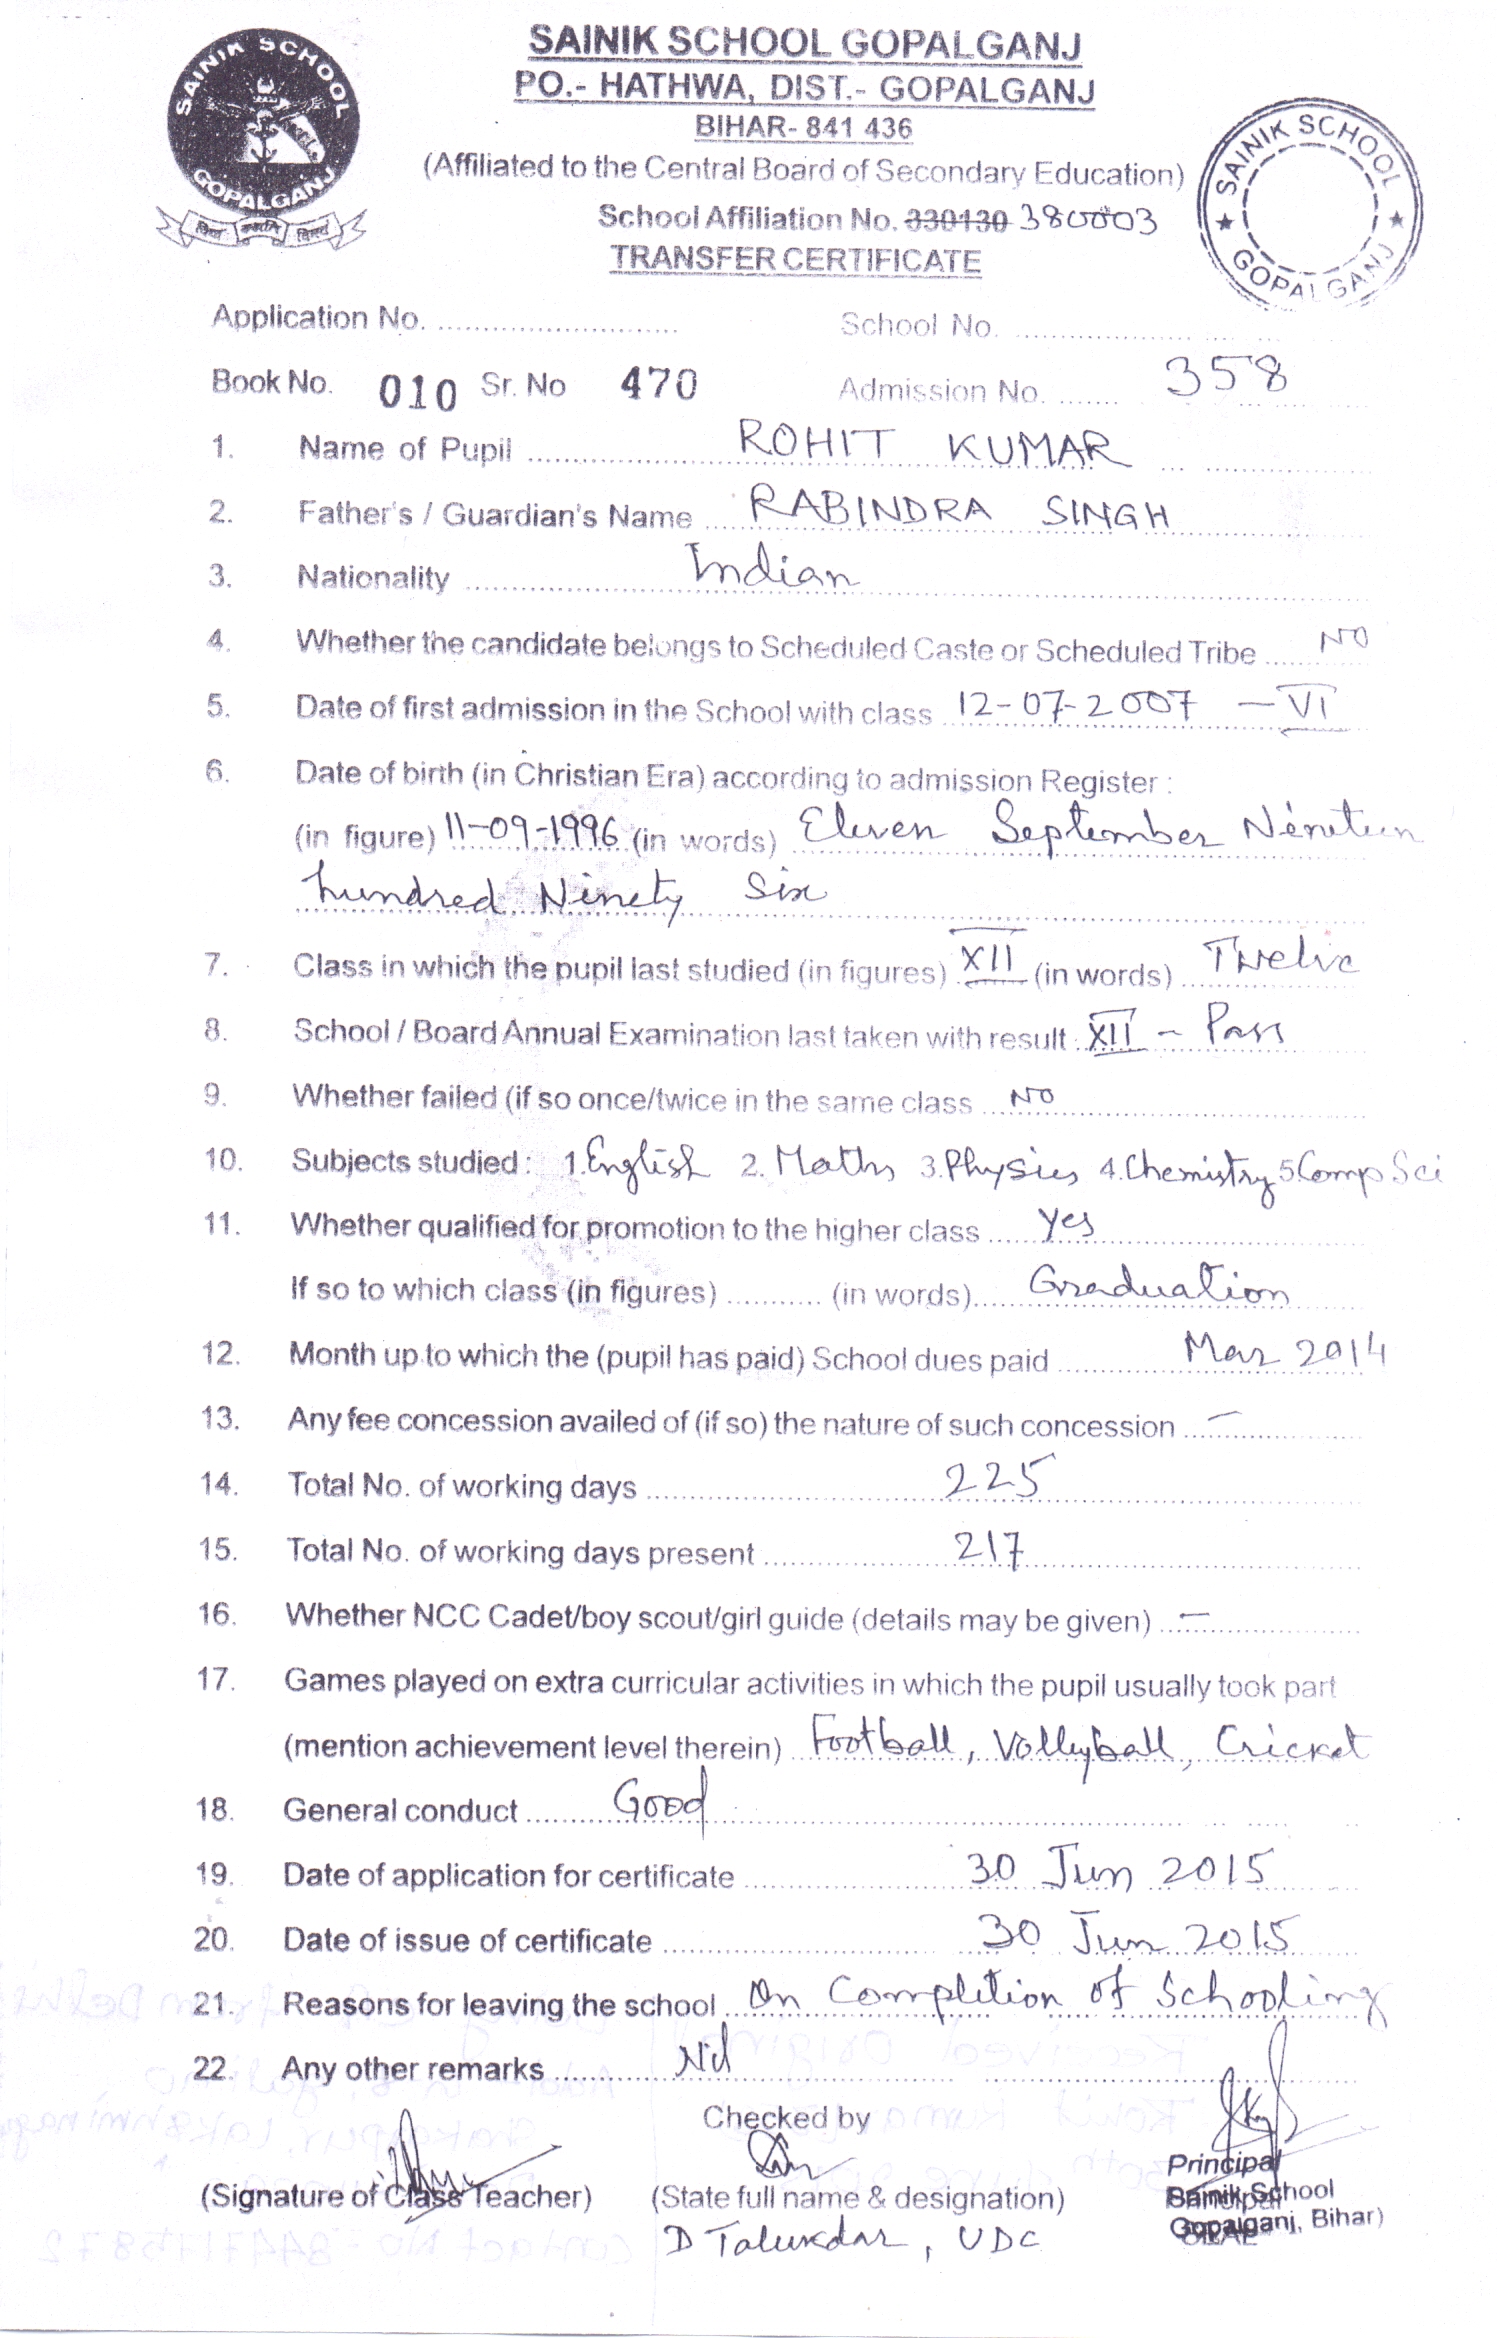 SAINIK SCHOOL GOPALGANJ
PO.- HATHWA, DIST.- GOPALGANJ
BIHAR- 841 436
(Affiliated to the Central Board of Secondary Education)
School Affiliation No. 330130 380003
TRANSFER CERTIFICATE
SAINIK SCHOOL
GOPALGANJ
SAINIK SCHOOL
★ GOPALGANJ ★
Application No. ............ School No. ............
Book No. 010 Sr. No 470 Admission No. ....... 358
1. Name of Pupil ROHIT KUMAR
2. Father's / Guardian's Name RABINDRA SINGH
3. Nationality Indian
4. Whether the candidate belongs to Scheduled Caste or Scheduled Tribe NO
5. Date of first admission in the School with class 12-07-2007 - VI
6. Date of birth (in Christian Era) according to admission Register :
(in figure) 11-09-1996 (in words) Eleven September Nineteen
hundred Ninety Six
7. Class in which the pupil last studied (in figures) XII (in words) Twelve
8. School / Board Annual Examination last taken with result XII - Pass
9. Whether failed (if so once/twice in the same class NO
10. Subjects studied : 1. English 2. Maths 3. Physics 4. Chemistry 5. Comp Sci
11. Whether qualified for promotion to the higher class Yes
If so to which class (in figures) ........... (in words) Graduation
12. Month up to which the (pupil has paid) School dues paid Mar 2014
13. Any fee concession availed of (if so) the nature of such concession —
14. Total No. of working days 225
15. Total No. of working days present 217
16. Whether NCC Cadet/boy scout/girl guide (details may be given) —
17. Games played on extra curricular activities in which the pupil usually took part
(mention achievement level therein) Football, Volleyball, Cricket
18. General conduct Good
19. Date of application for certificate 30 Jun 2015
20. Date of issue of certificate 30 Jun 2015
21. Reasons for leaving the school On Completion of Schooling
22. Any other remarks Nil
Checked by
Principal
(Signature of Class Teacher) (State full name & designation) Sainik School
D Talukdar, UDC Gopalganj, Bihar)